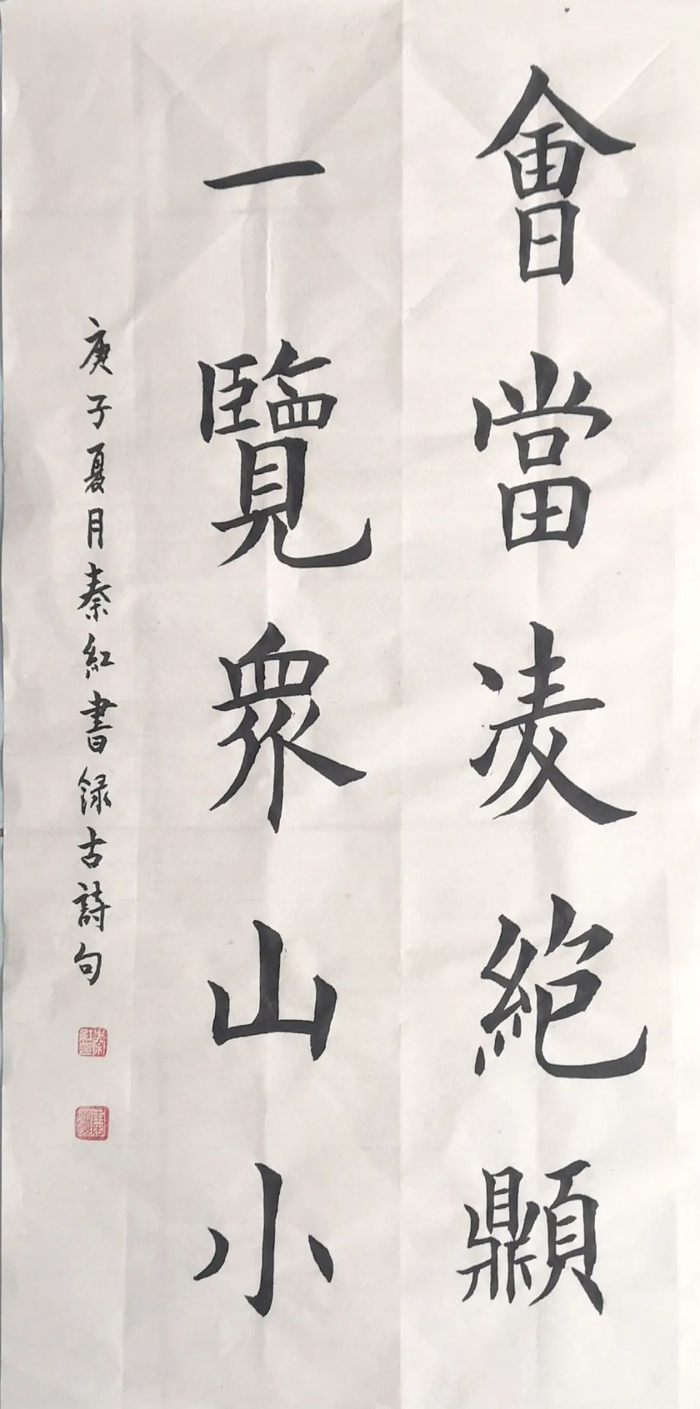 會當凌絶𩕢
一覽眾山小
庚子夏月秦紅書錄古詩句